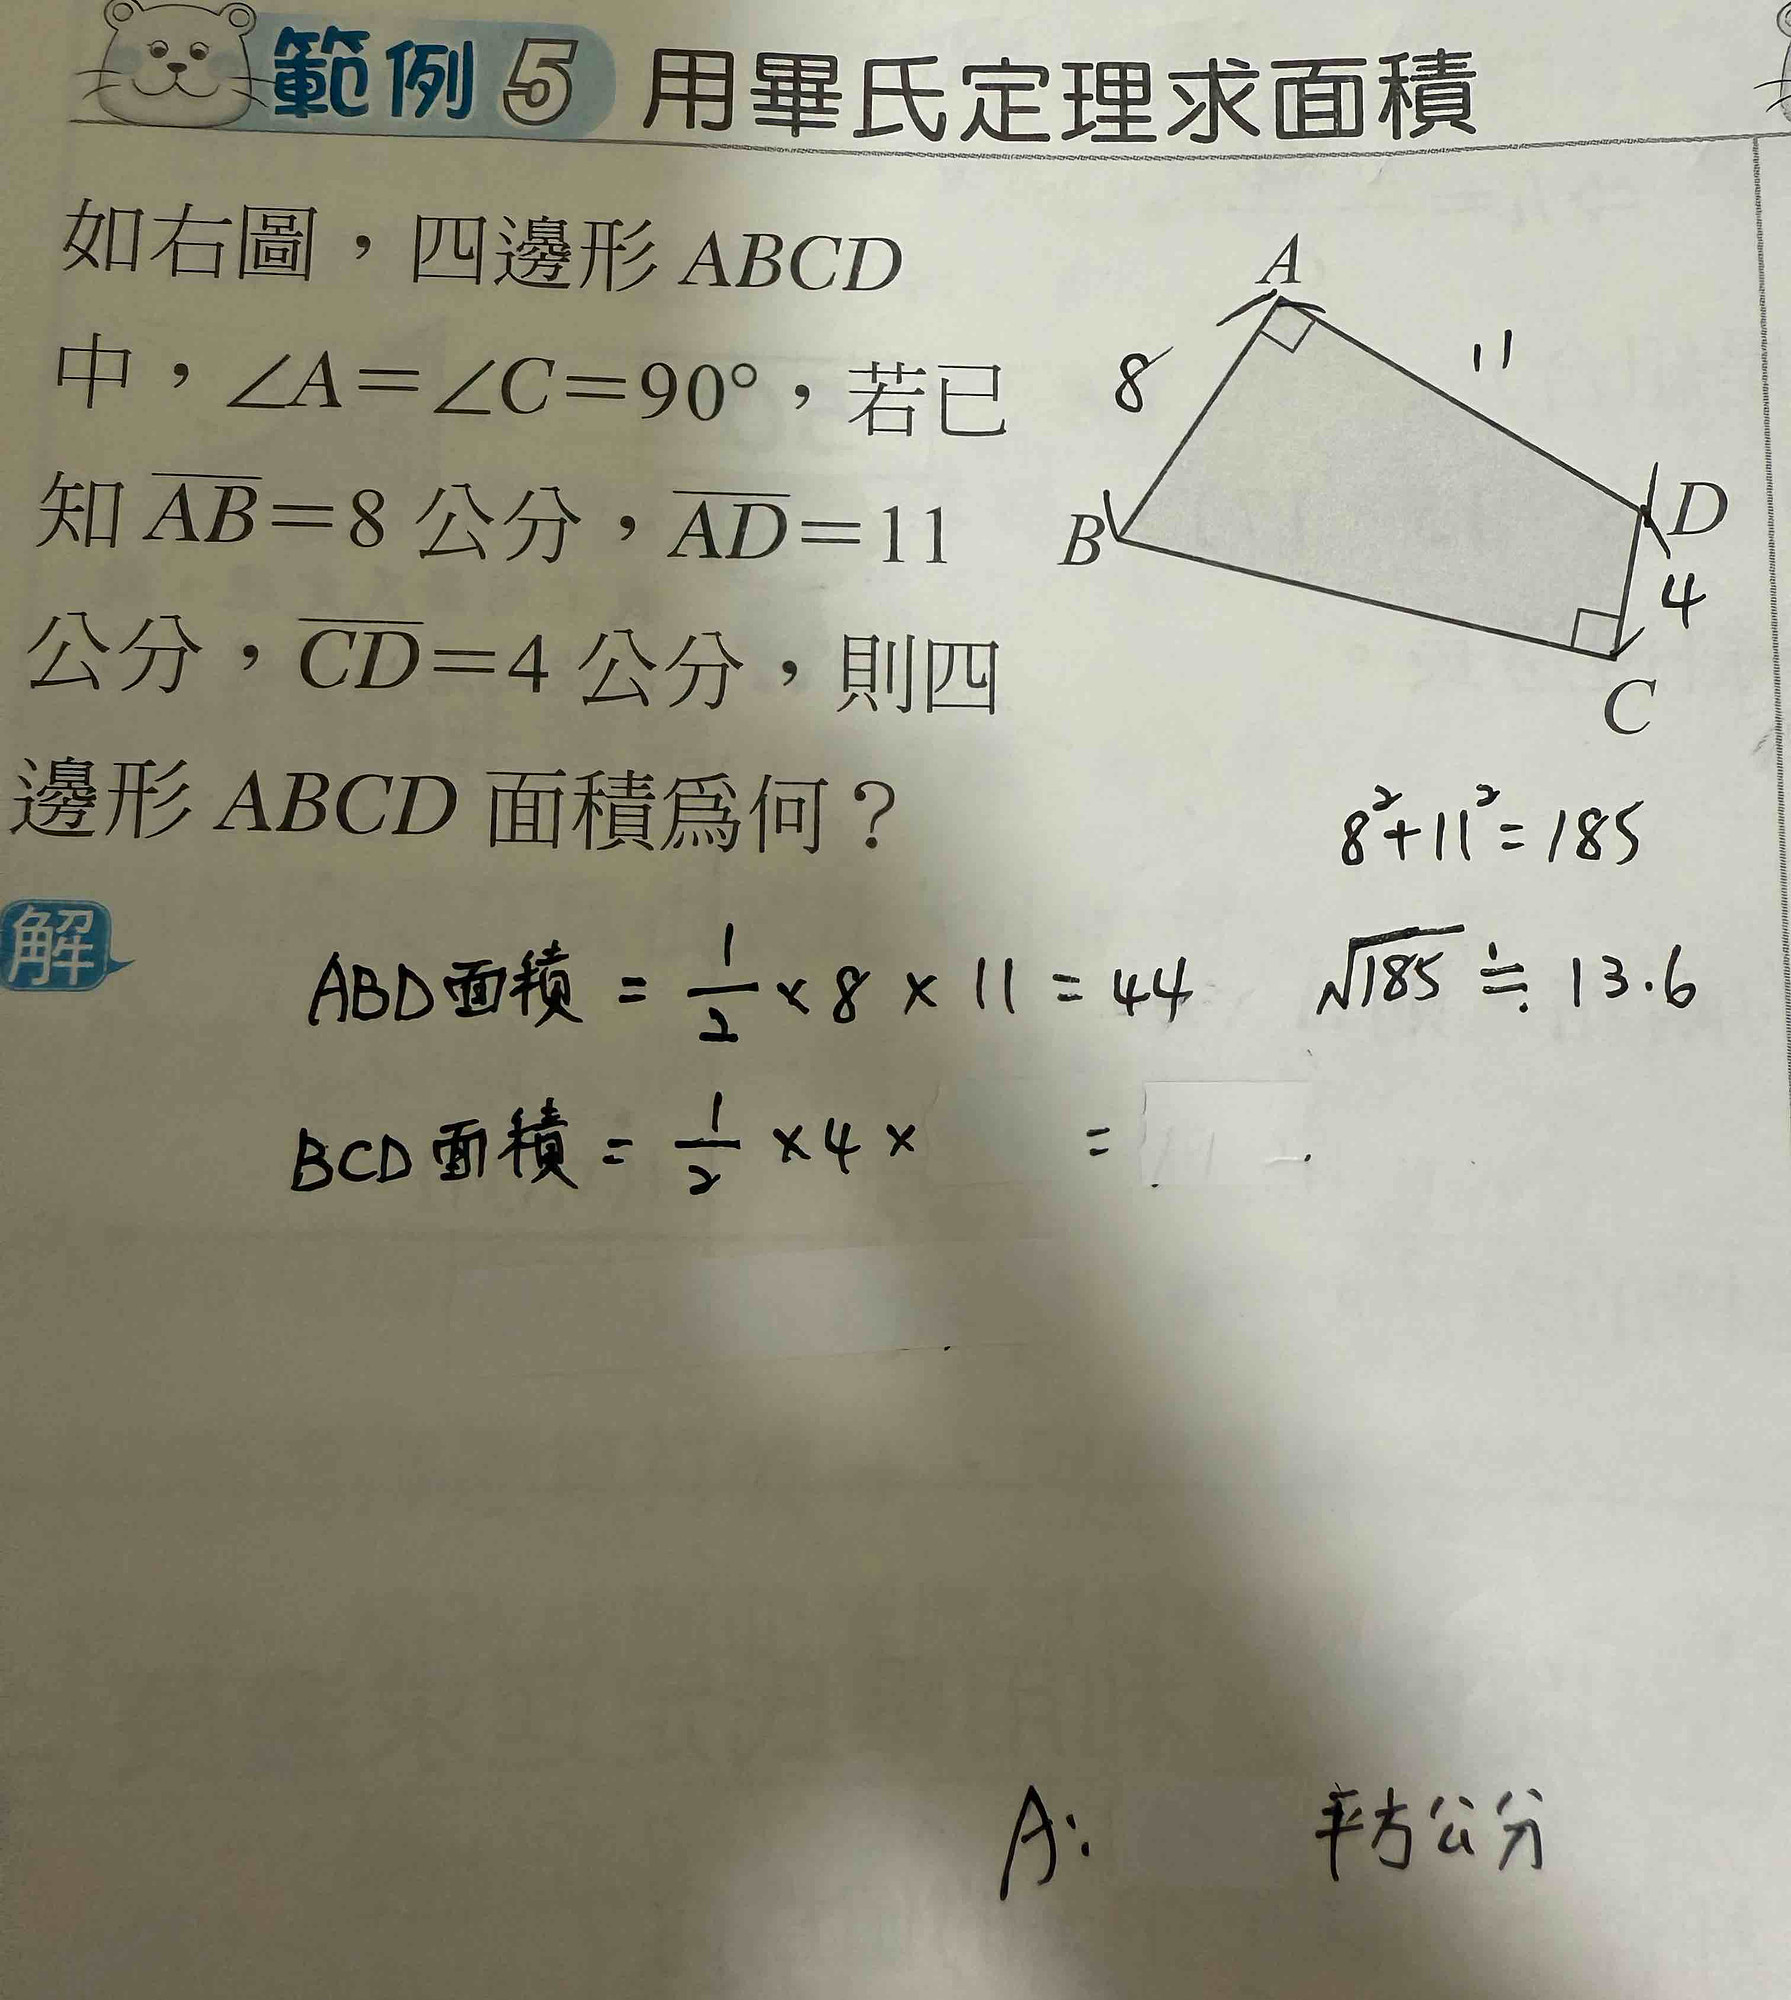 範例 5 用畢氏定理求面積
如右圖,四邊形 ABCD
中,∠A=∠C=90°,若已
知 A̅B̅=8 公分,A̅D̅=11
公分,C̅D̅=4 公分,則四
邊形 ABCD 面積為何?
A
8
11
B
D
4
C
8²+11²=185
解
ABD面積 = 1/2 × 8 × 11 = 44
√185 ≒ 13.6
BCD面積 = 1/2 × 4 × =
A: 平方公分